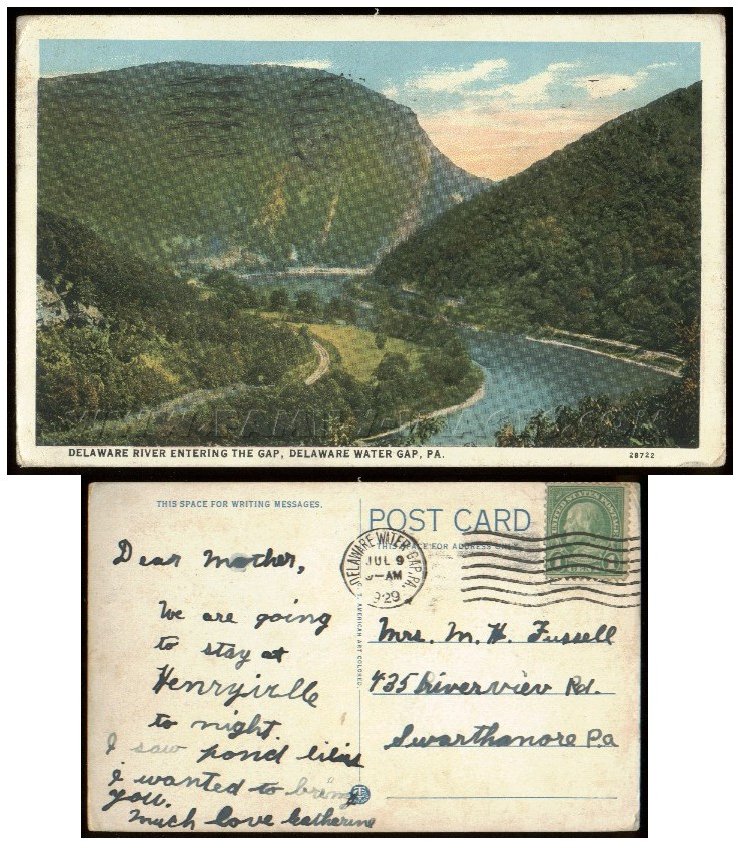 WWW.FAMILY-IMAGES.COM
DELAWARE RIVER ENTERING THE GAP, DELAWARE WATER GAP, PA.
28722
THIS SPACE FOR WRITING MESSAGES.
POST CARD
THIS SPACE FOR ADDRESS ONLY.
DELAWARE WATER GAP, PA.
JUL 9
AM
1929
UNITED STATES POSTAGE
C. T. AMERICAN ART COLORED
Dear Mother,
We are going
to stay at
Henryville
to night.
I saw pond lilies
I wanted to bring
you.
Much love Catherine
Mrs. M. H. Fussell
435 Riverview Rd.
Swarthmore Pa